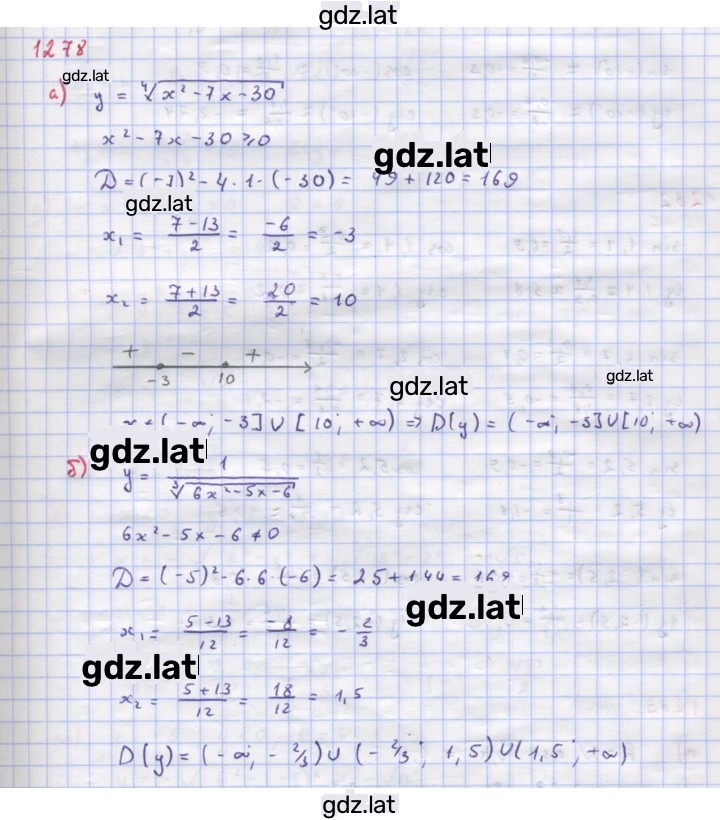 gdz.lat
1278
gdz.lat
а) y = ∜(x² - 7x - 30)
x² - 7x - 30 ⩾ 0
gdz.lat
D = (-7)² - 4 · 1 · (-30) = 49 + 120 = 169
gdz.lat
x₁ = (7-13)/2 = -6/2 = -3
x₂ = (7+13)/2 = 20/2 = 10
+ - +
-3 10
gdz.lat
gdz.lat
(-∞; -3] ∪ [10; +∞) ⇒ D(y) = (-∞; -3] ∪ [10; +∞)
gdz.lat
б) y = 1/∛(6x² - 5x - 6)
6x² - 5x - 6 ≠ 0
D = (-5)² - 6 · 6 · (-6) = 25 + 144 = 169
gdz.lat
x₁ = (5-13)/12 = -8/12 = -2/3
gdz.lat
x₂ = (5+13)/12 = 18/12 = 1,5
D(y) = (-∞; -2/3) ∪ (-2/3; 1,5) ∪ (1,5; +∞)
gdz.lat